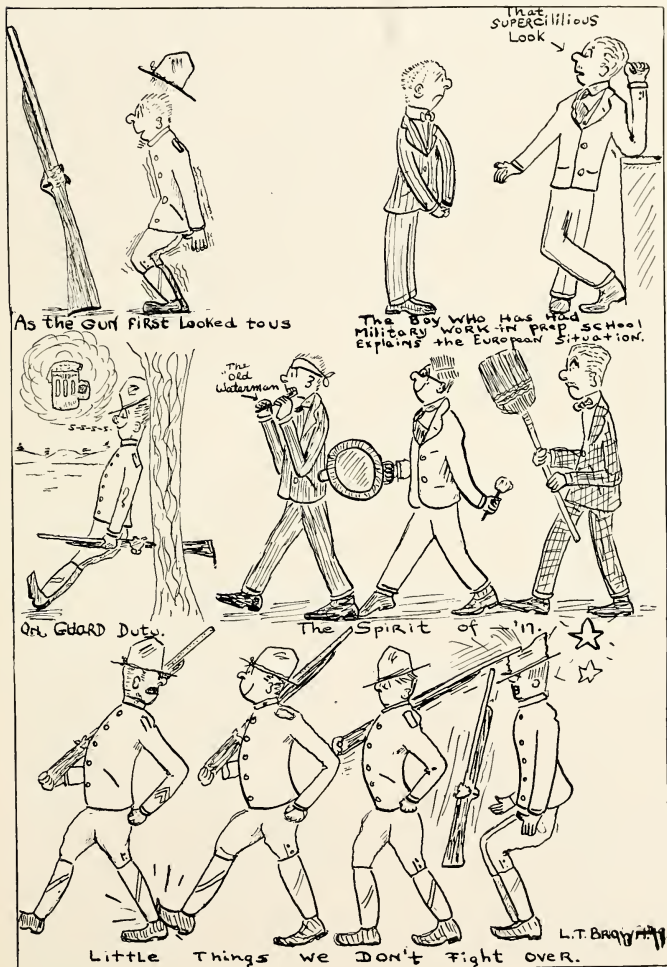 That
SUPERCILILIOUS
Look
As the GUN First Looked to us
The Boy WHO Has Had
Military WORK-IN prep SCHOOL
Explains the European Situation.
S-S-S-S-S.
"The
Old
Waterman"
On GUARD Duty.
The Spirit of - '17.
Little Things We DON'T Fight OVER.
L.T. Brown